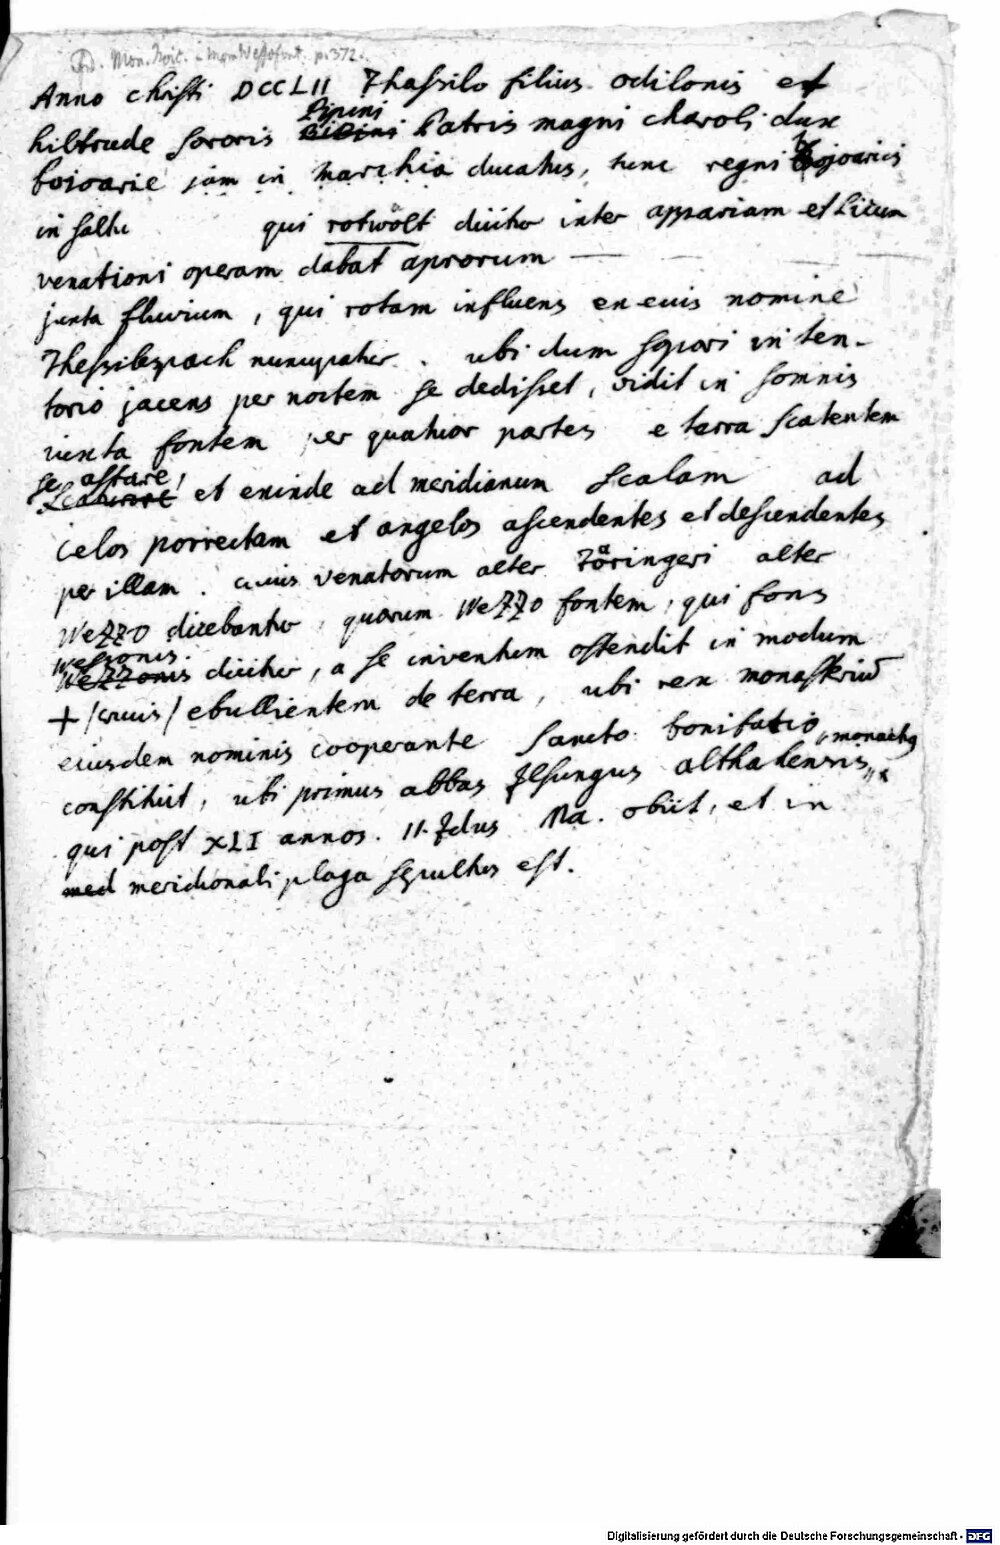 Mon. boic. Mon. Wessofont. p. 372.
Anno christi DCCLII Thassilo filius odilonis et
hiltrude sororis Pipini Patris magni charoli dux
bojoarie jam in marchia ducatus, tunc regni bojoarici
in saltu qui rotwålt dicitur inter appariam et Licum
venationi operam dabat aprorum
juxta fluvium, qui rotam influens ex eius nomine
Thessilespach nuncupatur. ubi dum sopori in ten-
torio jacens per noctem se dedisset, vidit in somnis
iuxta fontem per quatuor partes e terra scatentem
se astare, et exinde ad meridianum scalam ad
celos porrectam et angelos ascendentes et descendentes
per illam. cuius venatorum alter Töringeri alter
WeZZo dicebantur, quorum WeZZo fontem, qui fons
Wessonis WeZZonis dicitur, a se inventum ostendit in modum
+ /crucis/ ebullientem de terra, ubi rex monasteriū
eiusdem nominis cooperante Sancto bonifatio
constituit, ubi primus abbas Ilsungus althahensis monachus
qui post XLI annos. II. Idus Ma. obiit, et in
med meridionali plaga sepultus est.
Digitalisierung gefördert durch die Deutsche Forschungsgemeinschaft - DFG